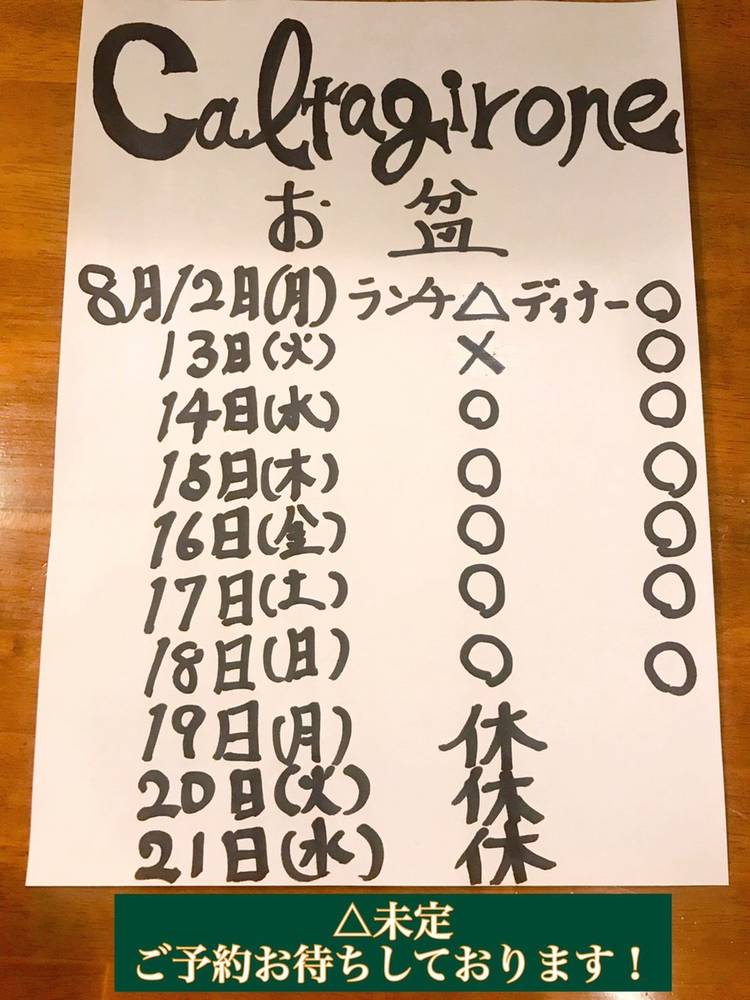 Caltagirone
お盆
8月12日(月) ランチ△ ディナー○
13日(火) × ○
14日(水) ○ ○
15日(木) ○ ○
16日(金) ○ ○
17日(土) ○ ○
18日(日) ○ ○
19日(月) 休
20日(火) 休
21日(水) 休
△未定
ご予約お待ちしております！